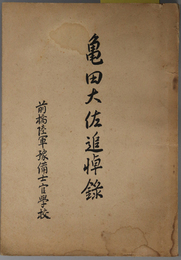 亀田大佐追悼錄
前橋陸軍豫備士官學校